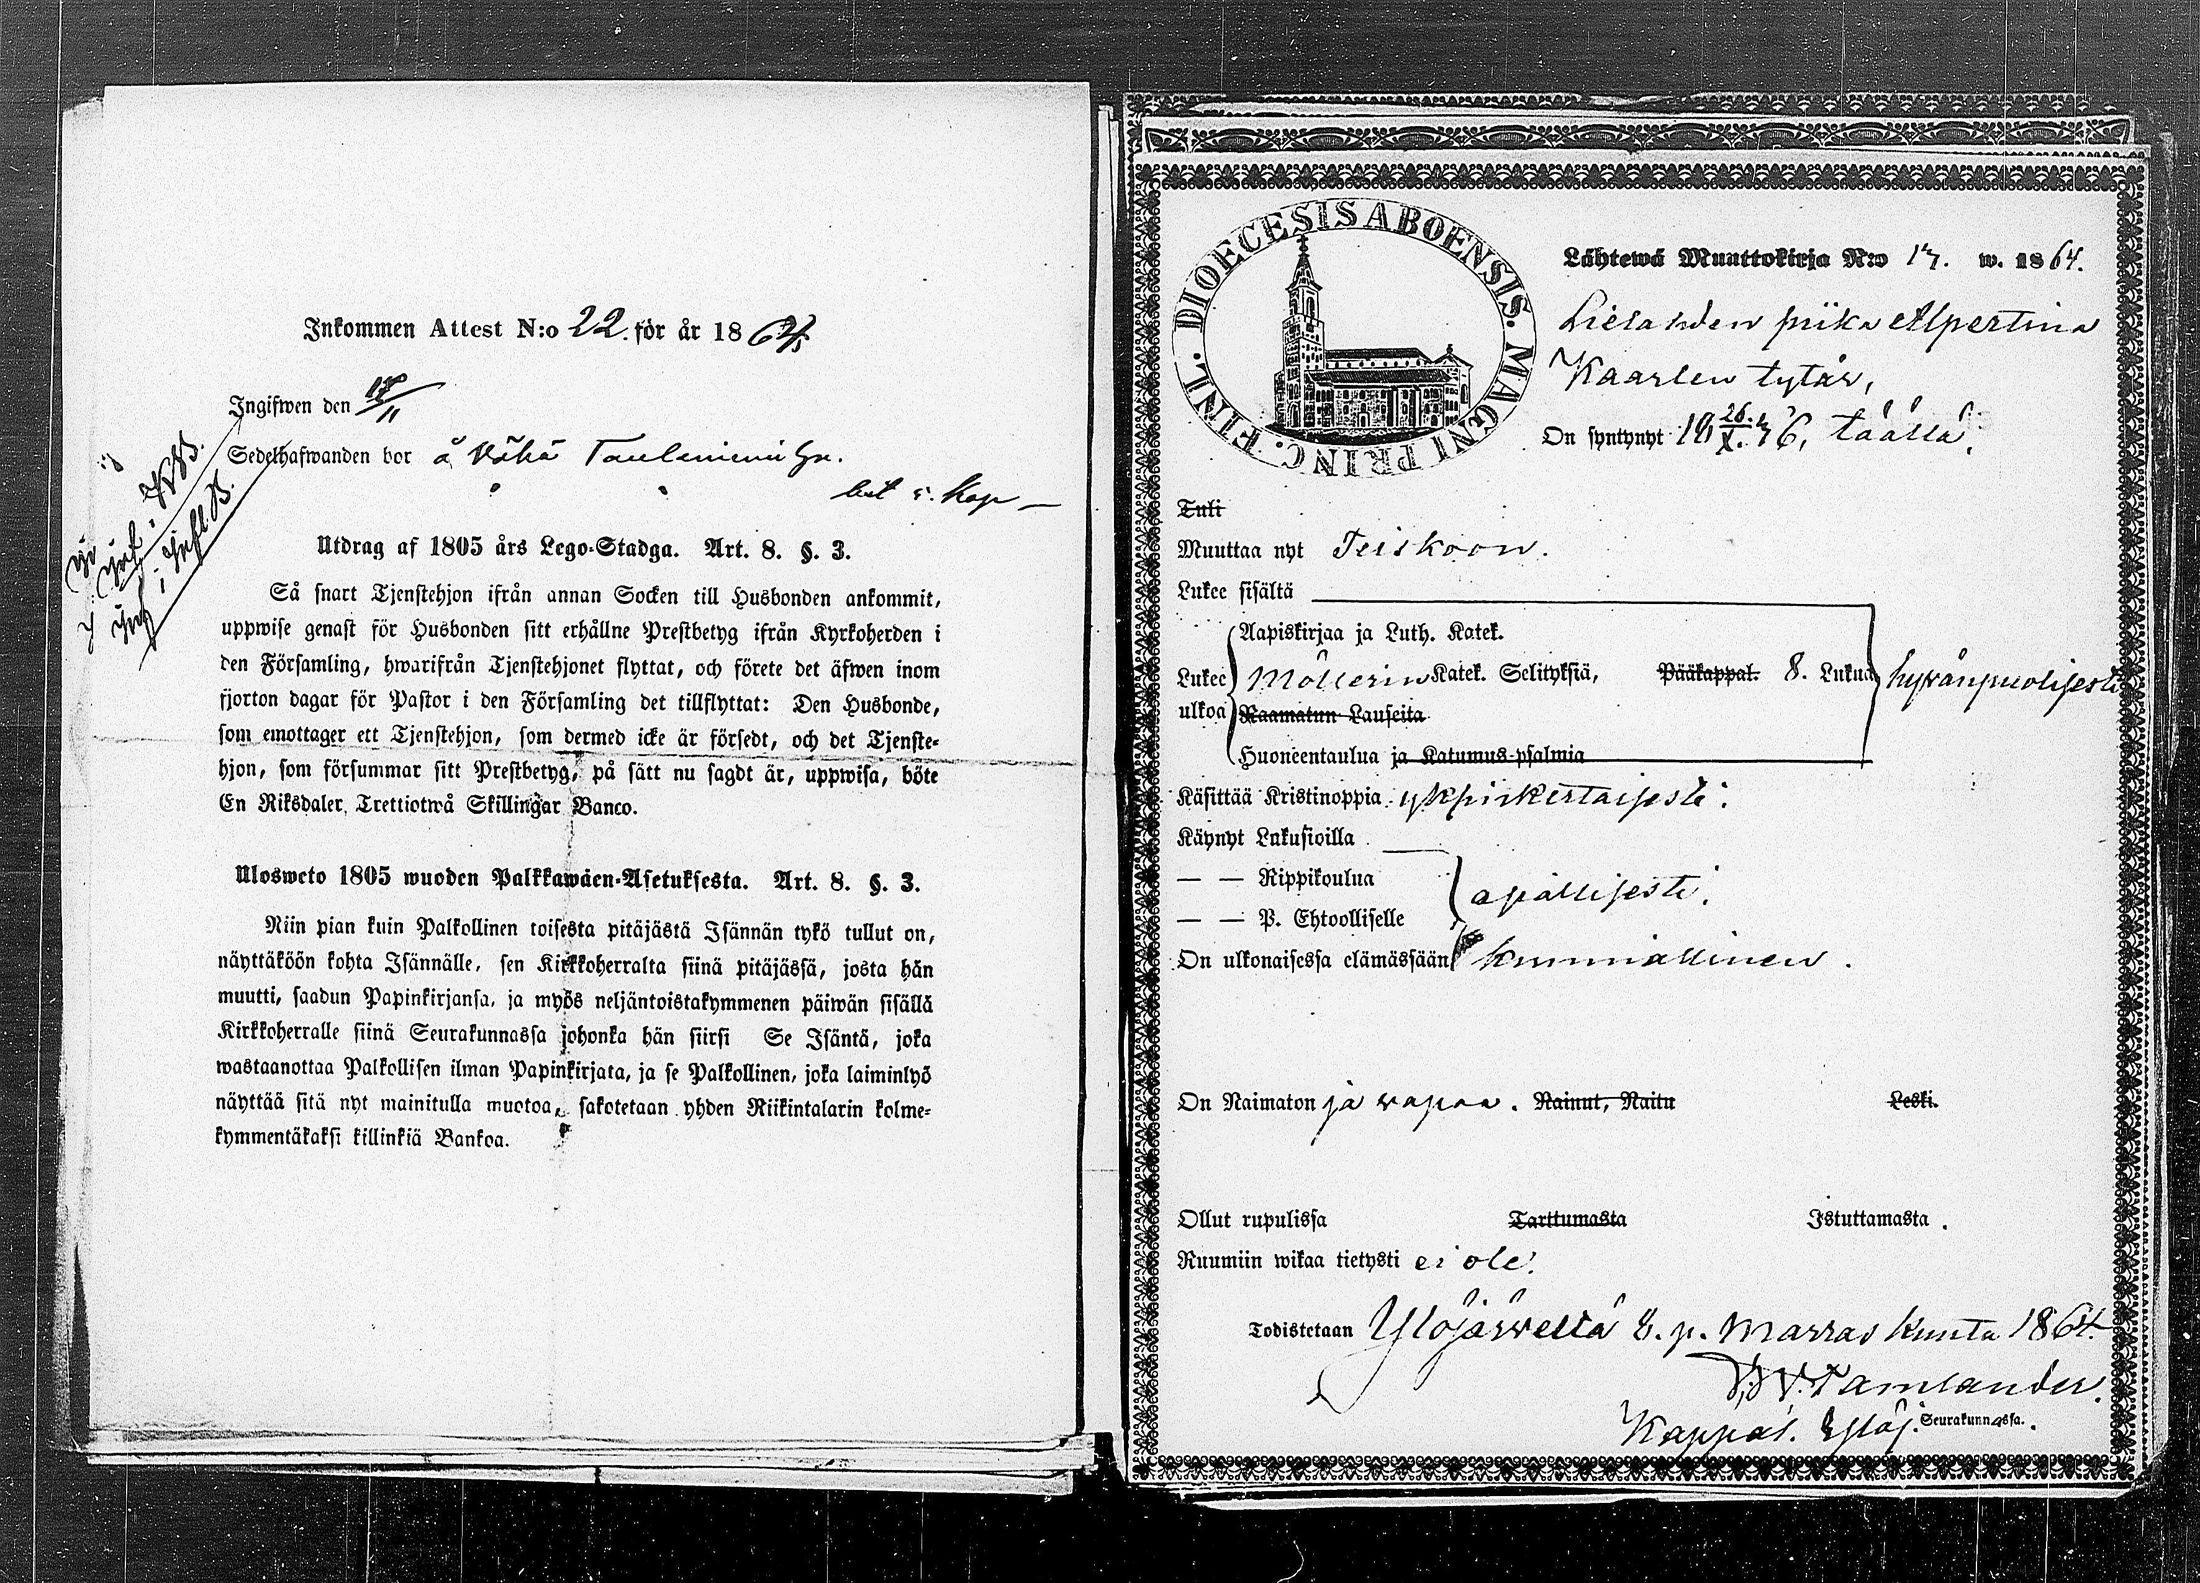 Inkommen Attest N:o 22. för år 186
Ingifwen den 18/11
Sedelhafwanden bor å Wähä
Utdrag af 1805 års Lego-Stadga. Art. 8. §. 3.
Så snart Tjenstehjon ifrån annan Socken till Husbonden ankommit,
uppwise genast för Husbonden sitt erhållne Prestbetyg ifrån Kyrkoherden i
den Församling, hwarifrån Tjenstehjonet flyttat, och förete det äfwen inom
fjorton dagar för Pastor i den Församling det tillflyttat: Den Husbonde,
som emottager ett Tjenstehjon, som dermed icke är försedt, och det Tjenste-
hjon, som försummar sitt Prestbetyg, på sätt nu sagdt är, uppwisa, böte
En Riksdaler Trettiotwå Skillingar Banco.
Ulosweto 1805 wuoden Palkkawäen-Asetuksesta. Art. 8. §. 3.
Niin pian kuin Palkollinen toisesta pitäjästä Isännän tykö tullut on,
näyttäköön kohta Isännälle, sen Kirkkoherralta siinä pitäjässä, josta hän
muutti, saadun Papinkirjansa, ja myös neljäntoistakymmenen päiwän sisällä
Kirkkoherralle siinä Seurakunnassa johonka hän siirsi Se Isäntä, joka
wastaanottaa Palkollisen ilman Papinkirjata, ja se Palkollinen, joka laiminlyö
näyttää sitä nyt mainitulla muotoa, sakotetaan yhden Riikintalarin kolme-
kymmentäkaksi killinkiä Bankoa.
DIOECESIS ABOENSIS. MAGNI PRINC. FINL.
Lähtewä Muuttokirja N:o 17. w. 1864.
Lielahden piika Alpertina
Kaarlen tytär,
On syntynyt 18 26/X. 46, täällä.
Tuli
Muuttaa nyt Teiskoon.
Lukee sisältä
Aapiskirjaa ja Luth. Katek.
Lukee Möllerin Katek. Selityksiä, Pääkappal. 8. Lukua hywänpuolisesti
ulkoa Raamatun Lauseita
Huoneentaulua ja Katumus-psalmia
Käsittää Kristinoppia ykpirkertaisesti.
Käynyt Lukusioilla
— — Rippikoulua
— — P. Ehtoolliselle apällisesti.
On ulkonaisessa elämässään kunniallinen.
On Naimaton ja wapaa. Nainut, Naitu Leski.
Ollut rupulissa Tarttumasta Istuttamasta.
Ruumiin wikaa tietysti ei ole.
Todistetaan Ylöjärwellä 8. p. Marraskuuta 1864.
Tamlander.
Kappal. Ylöj. Seurakunnassa.